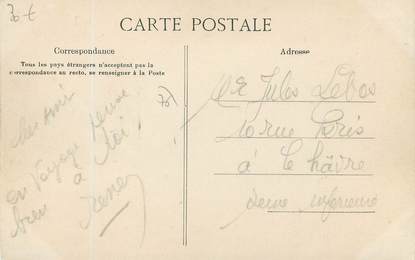 30 €
CARTE POSTALE
Correspondance
Tous les pays étrangers n'acceptent pas la
correspondance au recto, se renseigner à la Poste
Adresse
cher ami
en voyage pense
à toi
bien
René
76
Mr Jules Lebas
10 rue
à le hâvre
Seine inférieure